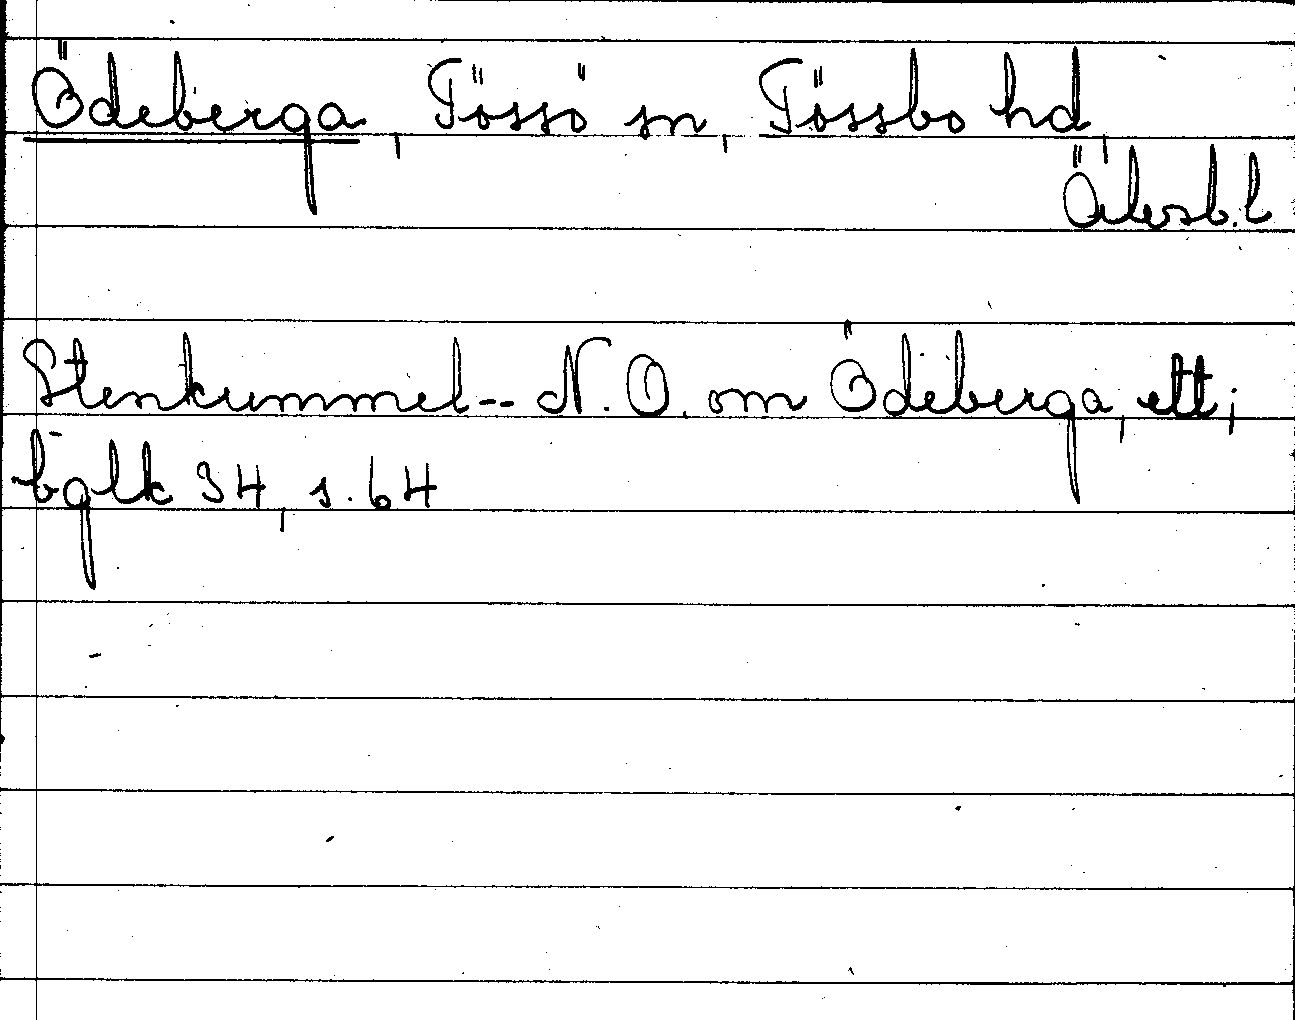 Ödeberga, Tössö sn, Tössbo hd,
Älvsb.l
Stenkummel-- N.O. om Ödeberga, ett;
bglk 34, s. 64